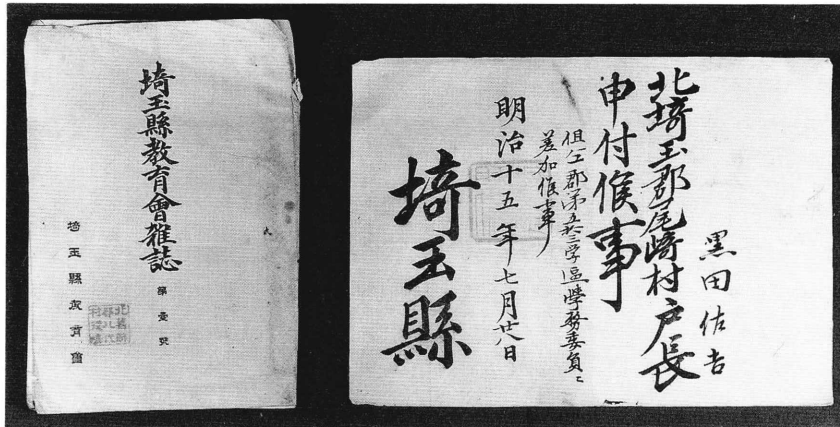 埼玉縣教育會雜誌
第壹號
埼玉縣教育會
黒田佐吉
北埼玉郡尾崎村戸長
申付候事
但仝郡第五拾三学區學務委員ニ
差加候事
明治十五年七月廿八日
埼玉縣